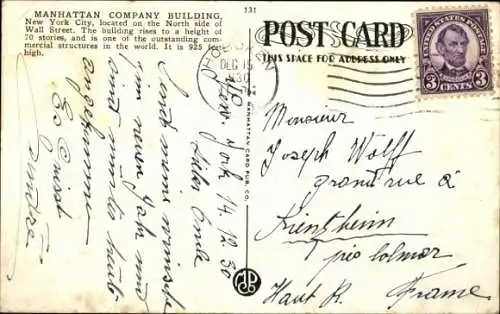 MANHATTAN COMPANY BUILDING,
New York City, located on the North side of
Wall Street. The building rises to a height of
70 stories, and is one of the outstanding com-
mercial structures in the world. It is 925 feet
high.
131
POST CARD
THIS SPACE FOR ADDRESS ONLY
HOBOKEN
DEC 15
1930
UNITED STATES POSTAGE
LINCOLN
3 CENTS 3
MANHATTAN CARD PUB. CO.
New York 14.12.30
Lieber Onkel
zum neuen Jahr und
Es grüsst
André
Monsieur
Joseph Wolff
grand rue à
Kientzheim
près Colmar
Haut R. France